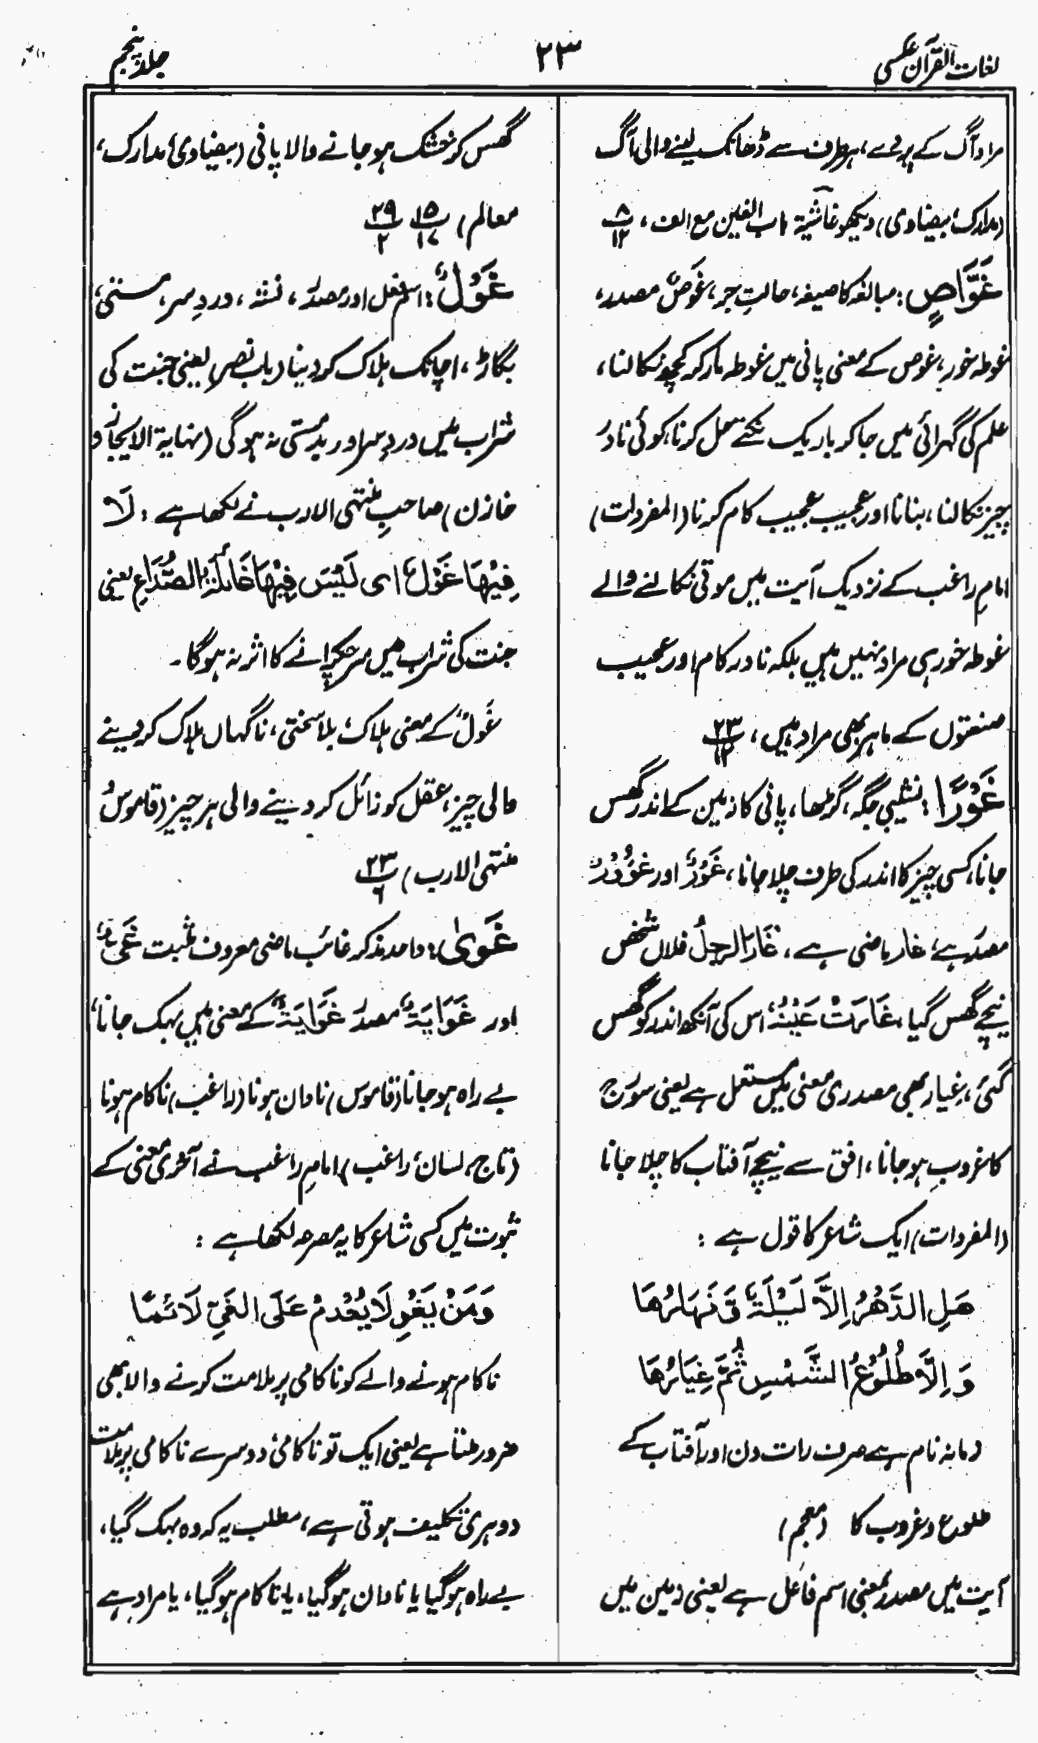 لغات القرآن عکسی
۲۳
جلد پنجم
مراد آگ کے پردے، ہر طرف سے ڈھانک لینے والی آگ
(مدارک، بیضاوی) دیکھو غاشیۃ باب الغین مع الف، ۸/۱۲
غَوَّاصٍ: مبالغہ کا صیغہ، حالتِ جر، غَوصٌ مصدر،
غوطہ خور، غوص کے معنی پانی میں غوطہ مار کر کچھ نکالنا،
علم کی گہرائی میں جا کر باریک نکتے حل کرنا، کوئی نادر
چیز نکالنا، بنانا اور عجیب عجیب کام کرنا (المفردات)
امام راغب کے نزدیک آیت میں موتی نکالنے والے
غوطہ خور ہی مراد نہیں ہیں بلکہ نادر کام اور عجیب
صنعتوں کے ماہر بھی مراد ہیں، ۲۳/۱۲
غَوْرًا: نشیبی جگہ، گڑھا، پانی کا زمین کے اندر گھس
جانا، کسی چیز کا اندر کی طرف چلا جانا، غَوْرٌ اور غُؤُوْرٌ
مصدر ہے، غار ماضی ہے، غَارَ الرجلُ فلاں شخص
نیچے گھس گیا، غَارَتْ عَيْنُهٗ اس کی آنکھ اندر کو گھس
گئی، غیار بھی مصدری معنی میں مستعمل ہے یعنی سورج
کا غروب ہو جانا، افق سے نیچے آفتاب کا چلا جانا
(المفردات) ایک شاعر کا قول ہے :
هَلِ الدَّهْرُ اِلَّا لَيْلَةٌ وَّ نَهَارُهَا
وَ اِلَّا طُلُوْعُ الشَّمْسِ ثُمَّ غِيَارُهَا
زمانہ نام ہے صرف رات دن اور آفتاب کے
طلوع و غروب کا (معجم)
آیت میں مصدر بمعنی اسم فاعل ہے یعنی زمین میں
گھس کر خشک ہو جانے والا پانی (بیضاوی، مدارک،
معالم) ۱۵/۱۷ ۲۹/۲
غَوْلٌ: اسم فعل اور مصدر، نشہ، دردِ سر، مستی،
بگاڑ، اچانک ہلاک کر دینا (باب نصر) یعنی جنت کی
شراب میں دردِ سر اور بدمستی نہ ہوگی (نہایۃ الایجاز و
خازن) صاحبِ منتہی الارب نے لکھا ہے : لَا
فِيْهَا غَوْلٌ ای لَيْسَ فِيْهَا غَائِلَةُ الصُّدَاعِ یعنی
جنت کی شراب میں سر چکرانے کا اثر نہ ہوگا۔
غُولٌ کے معنی ہلاک، بلا، سختی، ناگہاں ہلاک کر دینے
والی چیز، عقل کو زائل کر دینے والی ہر چیز (قاموس
منتہی الارب) ۲۳/۶
غَوٰی: واحد مذکر غائب ماضی معروف مثبت غَیٌّ
اور غَوَايَةٌ مصدر غَوَايَةٌ کے معنی ہیں بہک جانا،
بے راہ ہو جانا (قاموس) نادان ہونا (راغب) ناکام ہونا
(تاج، لسان، راغب) امام راغب نے آخری معنی کے
ثبوت میں کسی شاعر کا یہ مصرعہ لکھا ہے :
وَمَنْ يَغْوِ لَا يَعْدِمْ عَلَى الْغَيِّ لَائِمًا
ناکام ہونے والے کو ناکامی پر ملامت کرنے والا بھی
ضرور ملتا ہے یعنی ایک تو ناکامی دوسرے ناکامی پر ملامت
دوہری تکلیف ہوتی ہے، مطلب یہ کہ وہ بہک گیا،
بے راہ ہو گیا یا نادان ہو گیا، یا ناکام ہو گیا، یا مراد ہے